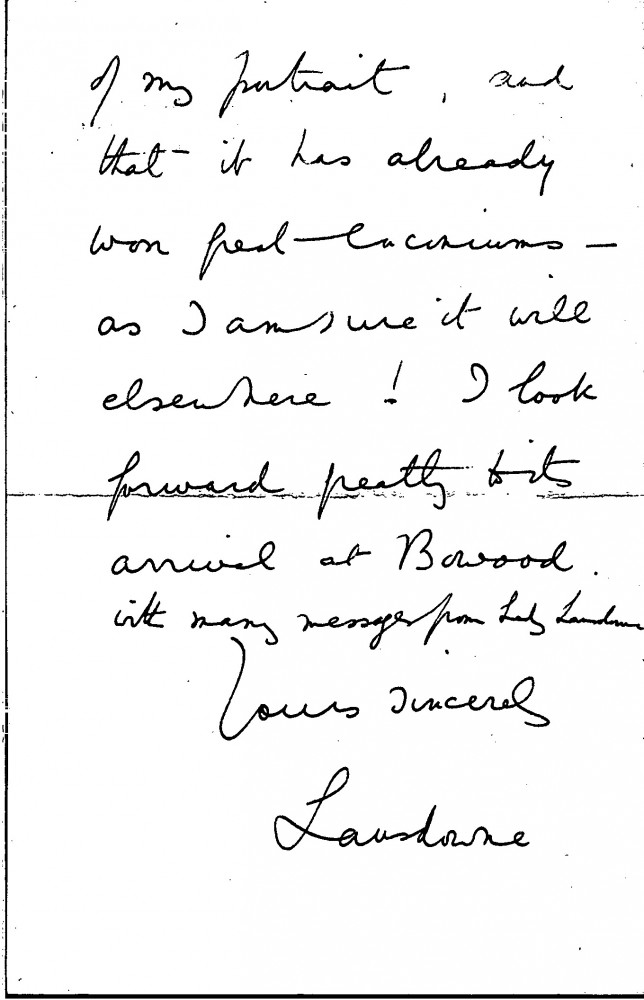 of my portrait, and
that it has already
won great encomiums –
as I am sure it will
elsewhere! I look
forward greatly to its
arrival at Bowood.
with many messages from Lady Lansdowne
Yours sincerely
Lansdowne